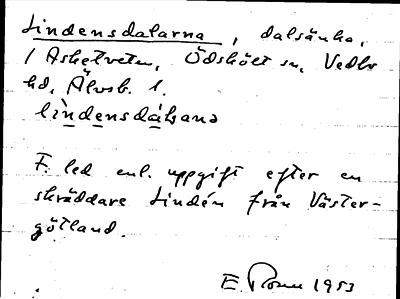 Lindensdalarna, dalsänka,
i Asketveten, Ödskölt sn, Vedbo
hd, Älvsb. l.
lìndensdáḷana
F. led enl. uppgift efter en
skräddare Lindén från Väster-
götland.
E. 1953